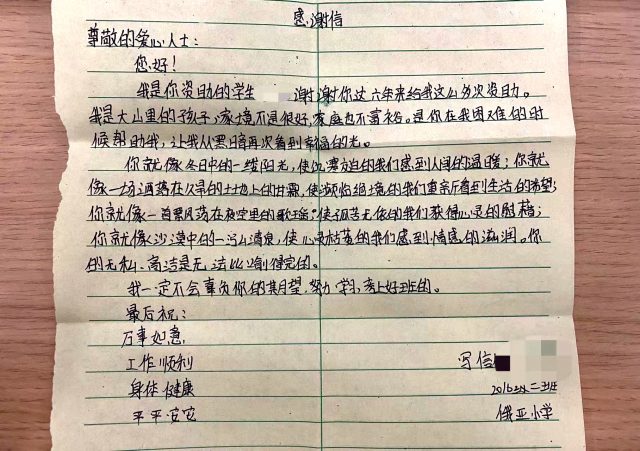 感谢信
尊敬的爱心人士：
您好！
我是你资助的学生 谢谢你这六年来给我这么多次资助。
我是大山里的孩子，家境不是很好，家庭也不富裕。是你在我困难的时
候帮助我，让我从黑暗再次看到幸福的光。
你就像冬日中的一缕阳光，使饥寒交迫的我们感到人间的温暖；你就
像一场洒落在久旱的土地上的甘霖，使濒临绝境的我们重新看到生活的希望；
你就像一首飘荡在夜空里的歌谣，使孤苦无依的我们获得心灵的慰藉；
你就像沙漠中的一汪清泉，使心灵枯萎的我们感到情感的滋润。你
的无私、高洁是无法比喻得完的。
我一定不会辜负你的期望，努力学习，考上好班的。
最后祝：
万事如意
工作顺利
身体健康
平平安安
写信
2016级二班
俄亚小学